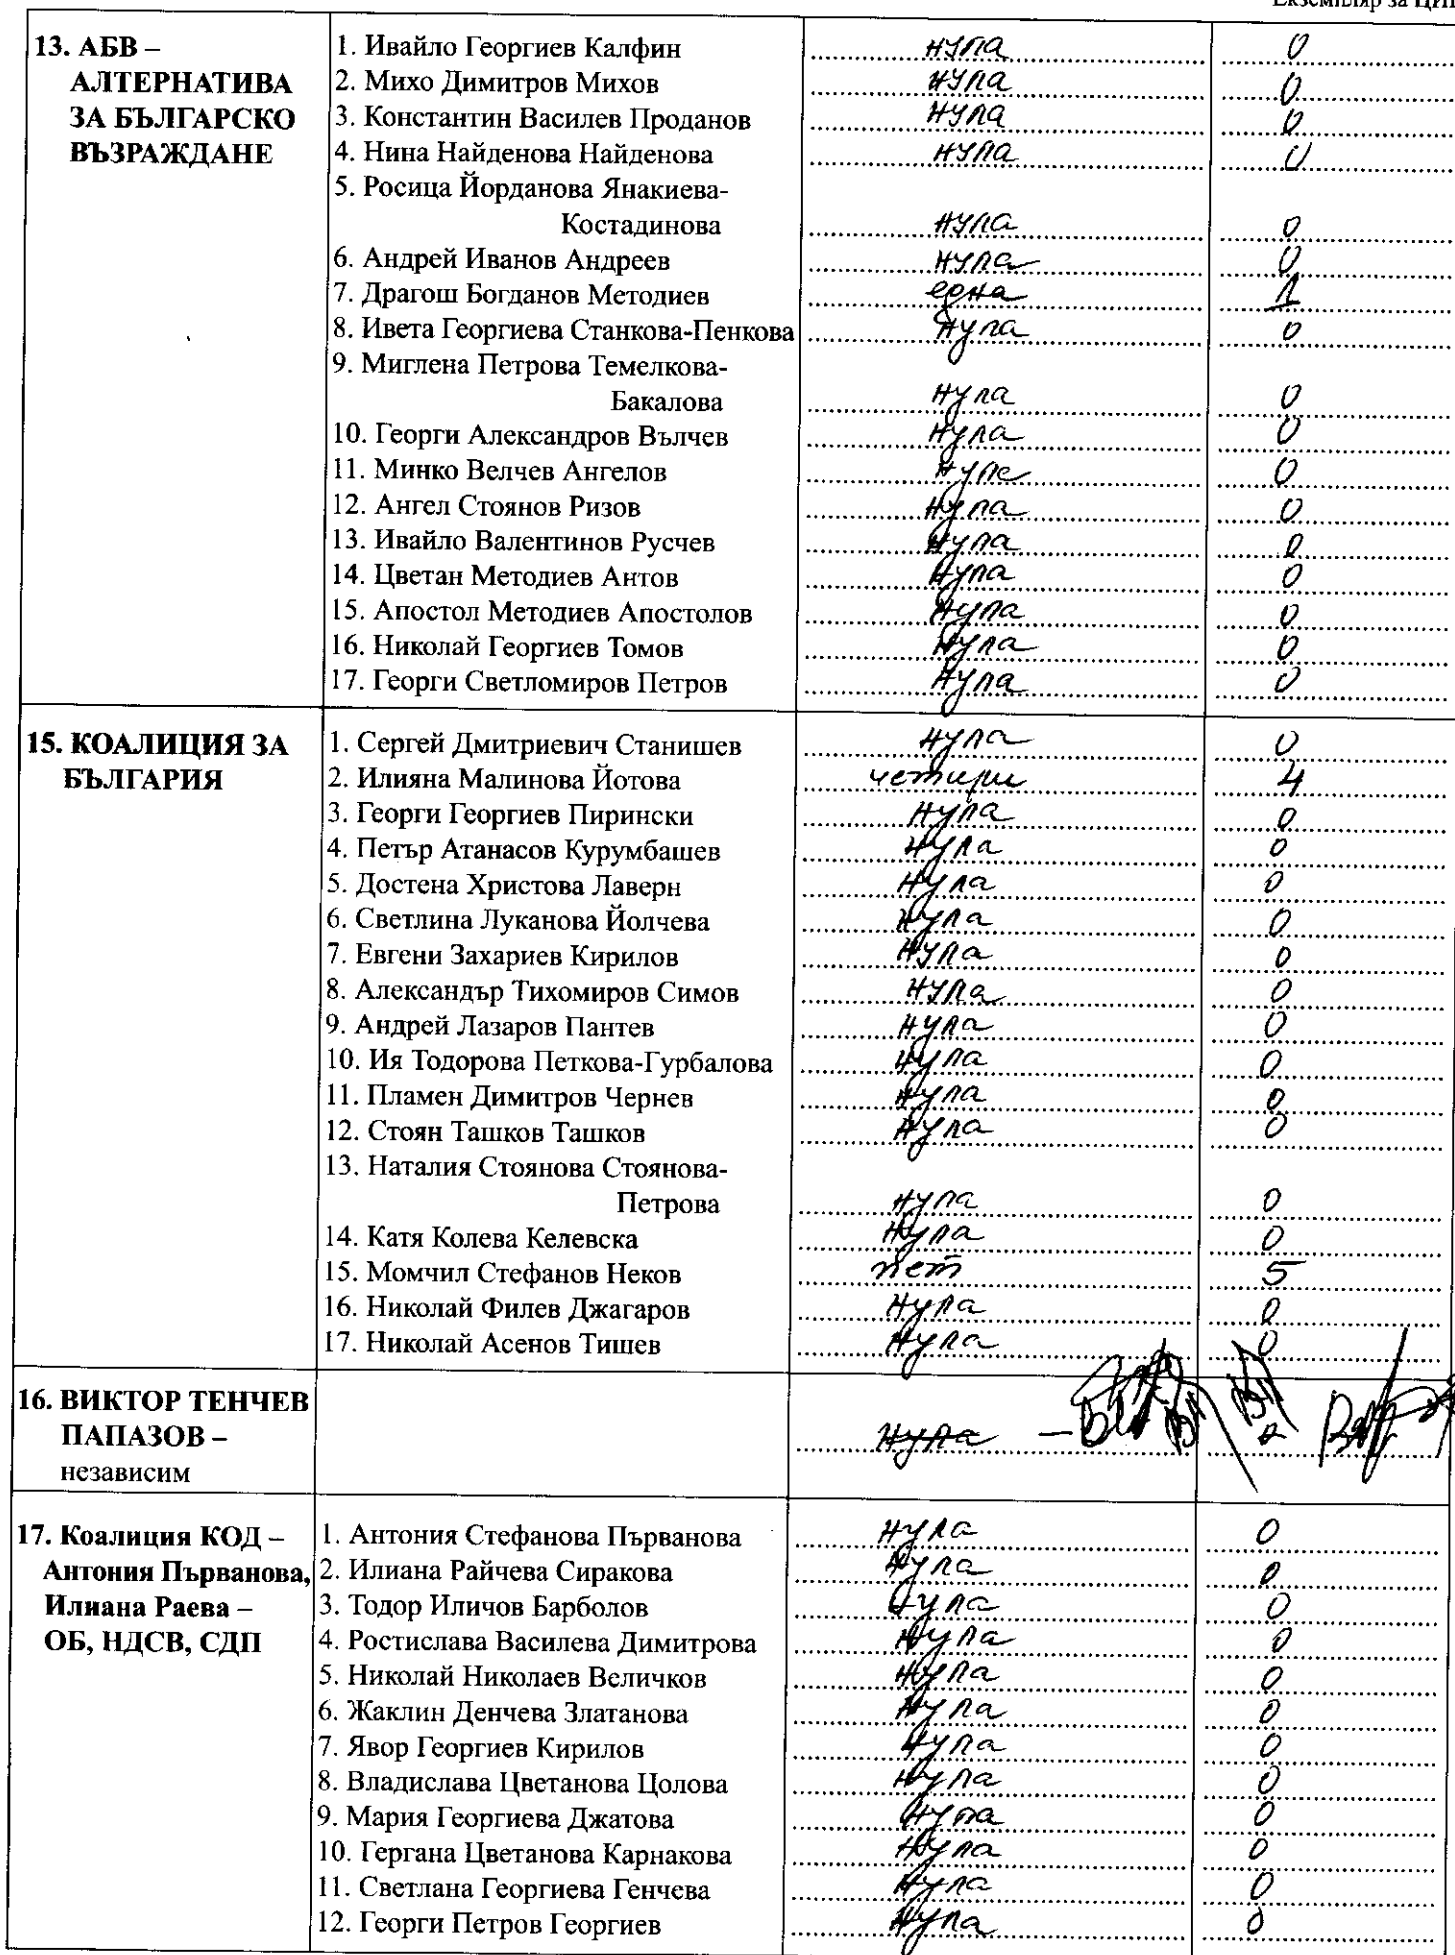 Екземпляр за ЦИК
13. АБВ –
АЛТЕРНАТИВА
ЗА БЪЛГАРСКО
ВЪЗРАЖДАНЕ
1. Ивайло Георгиев Калфин нула 0
2. Михо Димитров Михов нула 0
3. Константин Василев Проданов нула 0
4. Нина Найденова Найденова нула 0
5. Росица Йорданова Янакиева-
Костадинова нула 0
6. Андрей Иванов Андреев нула 0
7. Драгош Богданов Методиев една 1
8. Ивета Георгиева Станкова-Пенкова нула 0
9. Миглена Петрова Темелкова-
Бакалова нула 0
10. Георги Александров Вълчев нула 0
11. Минко Велчев Ангелов нула 0
12. Ангел Стоянов Ризов нула 0
13. Ивайло Валентинов Русчев нула 0
14. Цветан Методиев Антов нула 0
15. Апостол Методиев Апостолов нула 0
16. Николай Георгиев Томов нула 0
17. Георги Светломиров Петров нула 0
15. КОАЛИЦИЯ ЗА
БЪЛГАРИЯ
1. Сергей Дмитриевич Станишев нула 0
2. Илияна Малинова Йотова четири 4
3. Георги Георгиев Пирински нула 0
4. Петър Атанасов Курумбашев нула 0
5. Достена Христова Лаверн нула 0
6. Светлина Луканова Йолчева нула 0
7. Евгени Захариев Кирилов нула 0
8. Александър Тихомиров Симов нула 0
9. Андрей Лазаров Пантев нула 0
10. Ия Тодорова Петкова-Гурбалова нула 0
11. Пламен Димитров Чернев нула 0
12. Стоян Ташков Ташков нула 0
13. Наталия Стоянова Стоянова-
Петрова нула 0
14. Катя Колева Келевска нула 0
15. Момчил Стефанов Неков пет 5
16. Николай Филев Джагаров нула 0
17. Николай Асенов Тишев нула 0
16. ВИКТОР ТЕНЧЕВ
ПАПАЗОВ –
независим
нула
17. Коалиция КОД –
Антония Първанова,
Илиана Раева –
ОБ, НДСВ, СДП
1. Антония Стефанова Първанова нула 0
2. Илиана Райчева Сиракова нула 0
3. Тодор Иличов Барболов нула 0
4. Ростислава Василева Димитрова нула 0
5. Николай Николаев Величков нула 0
6. Жаклин Денчева Златанова нула 0
7. Явор Георгиев Кирилов нула 0
8. Владислава Цветанова Цолова нула 0
9. Мария Георгиева Джатова нула 0
10. Гергана Цветанова Карнакова нула 0
11. Светлана Георгиева Генчева нула 0
12. Георги Петров Георгиев нула 0